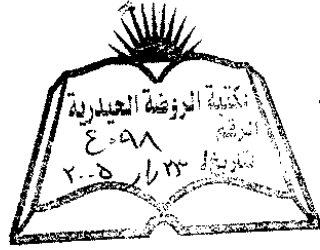 مكتبة الروضة الحيدرية
الرقم ٤٠٩٨
التاريخ ٢٣ / / ٢٠٠٥